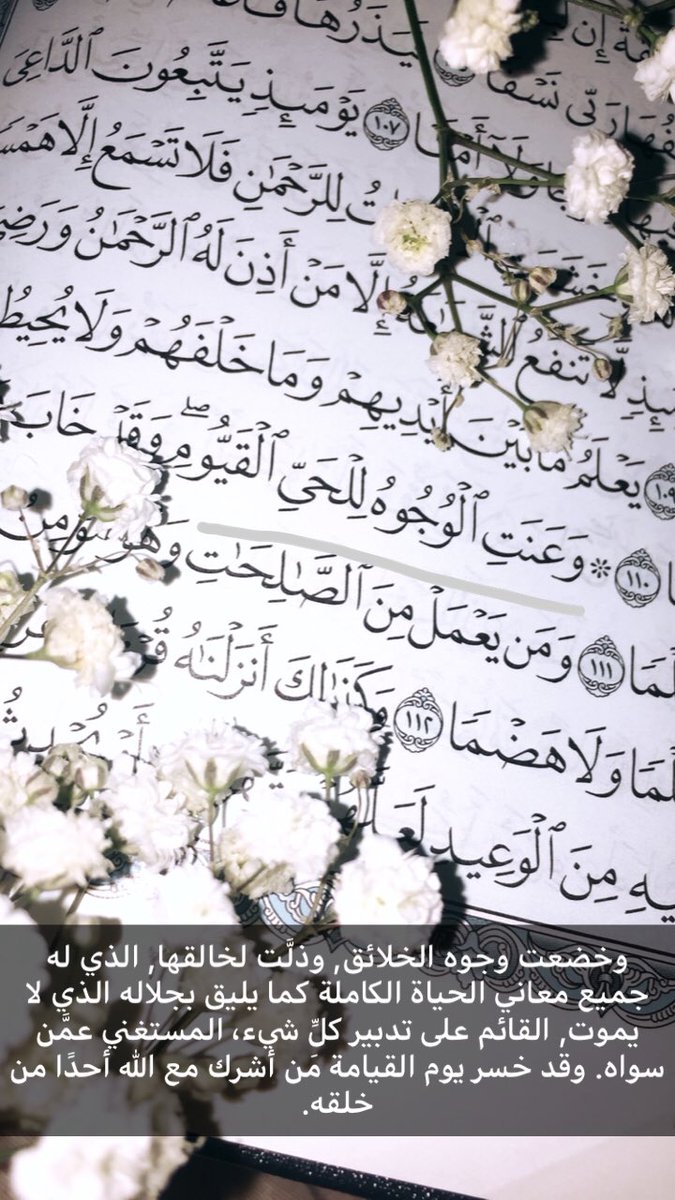 فَيَذَرُهَا
نَسْفًا ١٠٥
وَلَآ أَمْتًا ١٠٧ يَوْمَئِذٍ يَتَّبِعُونَ ٱلدَّاعِىَ
لِلرَّحْمَٰنِ فَلَا تَسْمَعُ إِلَّا هَمْسًا
تَنفَعُ إِلَّا مَنْ أَذِنَ لَهُ ٱلرَّحْمَٰنُ وَرَضِىَ
١٠٩ يَعْلَمُ مَا بَيْنَ أَيْدِيهِمْ وَمَا خَلْفَهُمْ وَلَا يُحِيطُ
١١٠ ۞ وَعَنَتِ ٱلْوُجُوهُ لِلْحَىِّ ٱلْقَيُّومِ ۖ وَقَدْ خَابَ
١١١ وَمَن يَعْمَلْ مِنَ ٱلصَّٰلِحَٰتِ وَهُوَ
وَلَا هَضْمًا ١١٢ وَكَذَٰلِكَ أَنزَلْنَٰهُ
مِنَ ٱلْوَعِيدِ لَعَلَّهُمْ
وخضعت وجوه الخلائق, وذلَّت لخالقها, الذي له
جميع معاني الحياة الكاملة كما يليق بجلاله الذي لا
يموت, القائم على تدبير كلِّ شيء، المستغني عمَّن
سواه. وقد خسر يوم القيامة مَن أشرك مع الله أحدًا من
خلقه.